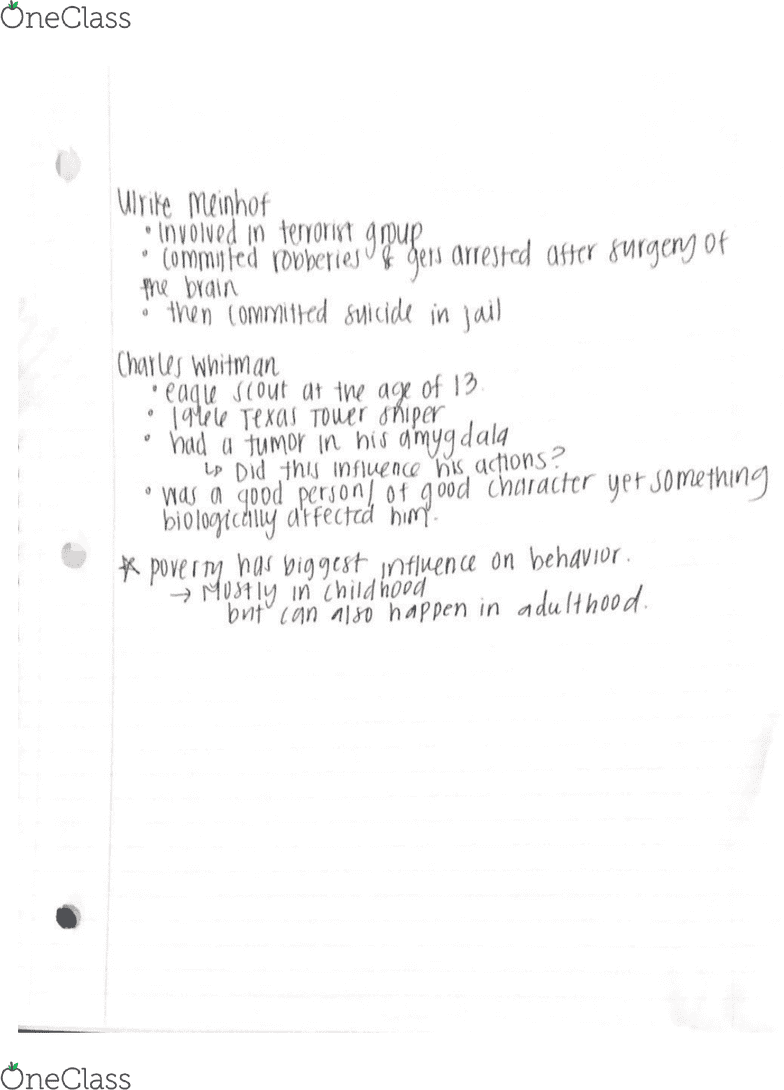 OneClass
Ulrike Meinhof
• Involved in terrorist group
• committed robberies & gets arrested after surgery of
the brain
• then committed suicide in jail
Charles Whitman
• eagle scout at the age of 13.
• Texas Tower Sniper
• had a tumor in his amygdala
↳ Did this influence his actions?
• was a good person/ of good character yet something
biologically affected him.
* poverty has biggest influence on behavior.
→ Mostly in childhood
but can also happen in adulthood.
OneClass